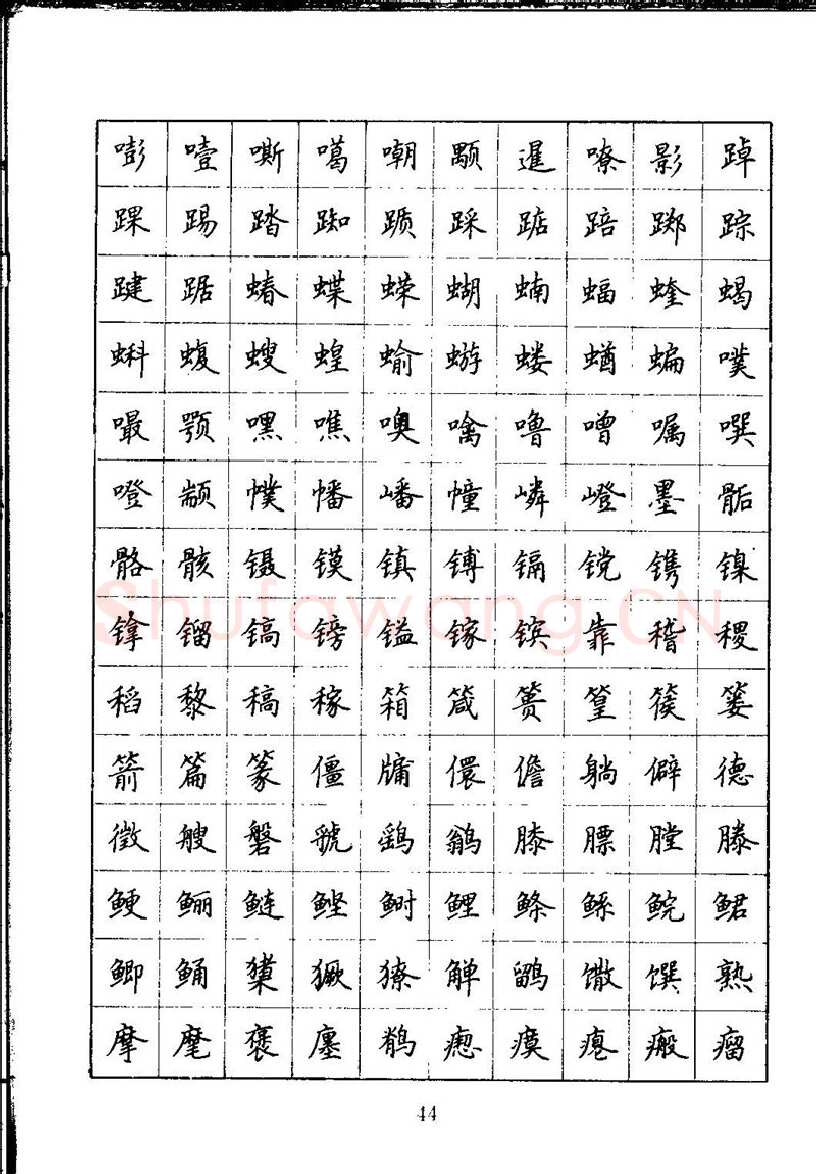 嘭噎嘶噶嘲颙暹嘹影踔
踝踢踏踟踬踩踮踣踯踪
踺踞蝽蝶蝾蝴蝻蝠蝰蝎
蝌蝮螋蝗蝓蝣蝼蝤蝙噗
嘬颚嘿噍噢噙噜噌嘱噀
噔颛幞幡嶓幢嶙嶝墨骺
骼骸镊镆镇镈镉镋镌镍
镎镏镐镑镒镓镔靠稽稷
稻黎稿稼箱箴篑篁篌篓
箭篇篆僵牖儇儋躺僻德
徵艘磐虢鹞鹟膝膘膛滕
鲠鲡鲢鲣鲥鲤鲦鲧鲩鲪
鲫鲬獒獗獠觯鹠馓馔熟
摩麾褒廛鹡瘛瘼瘪瘢瘤
44
Shufawang.CN